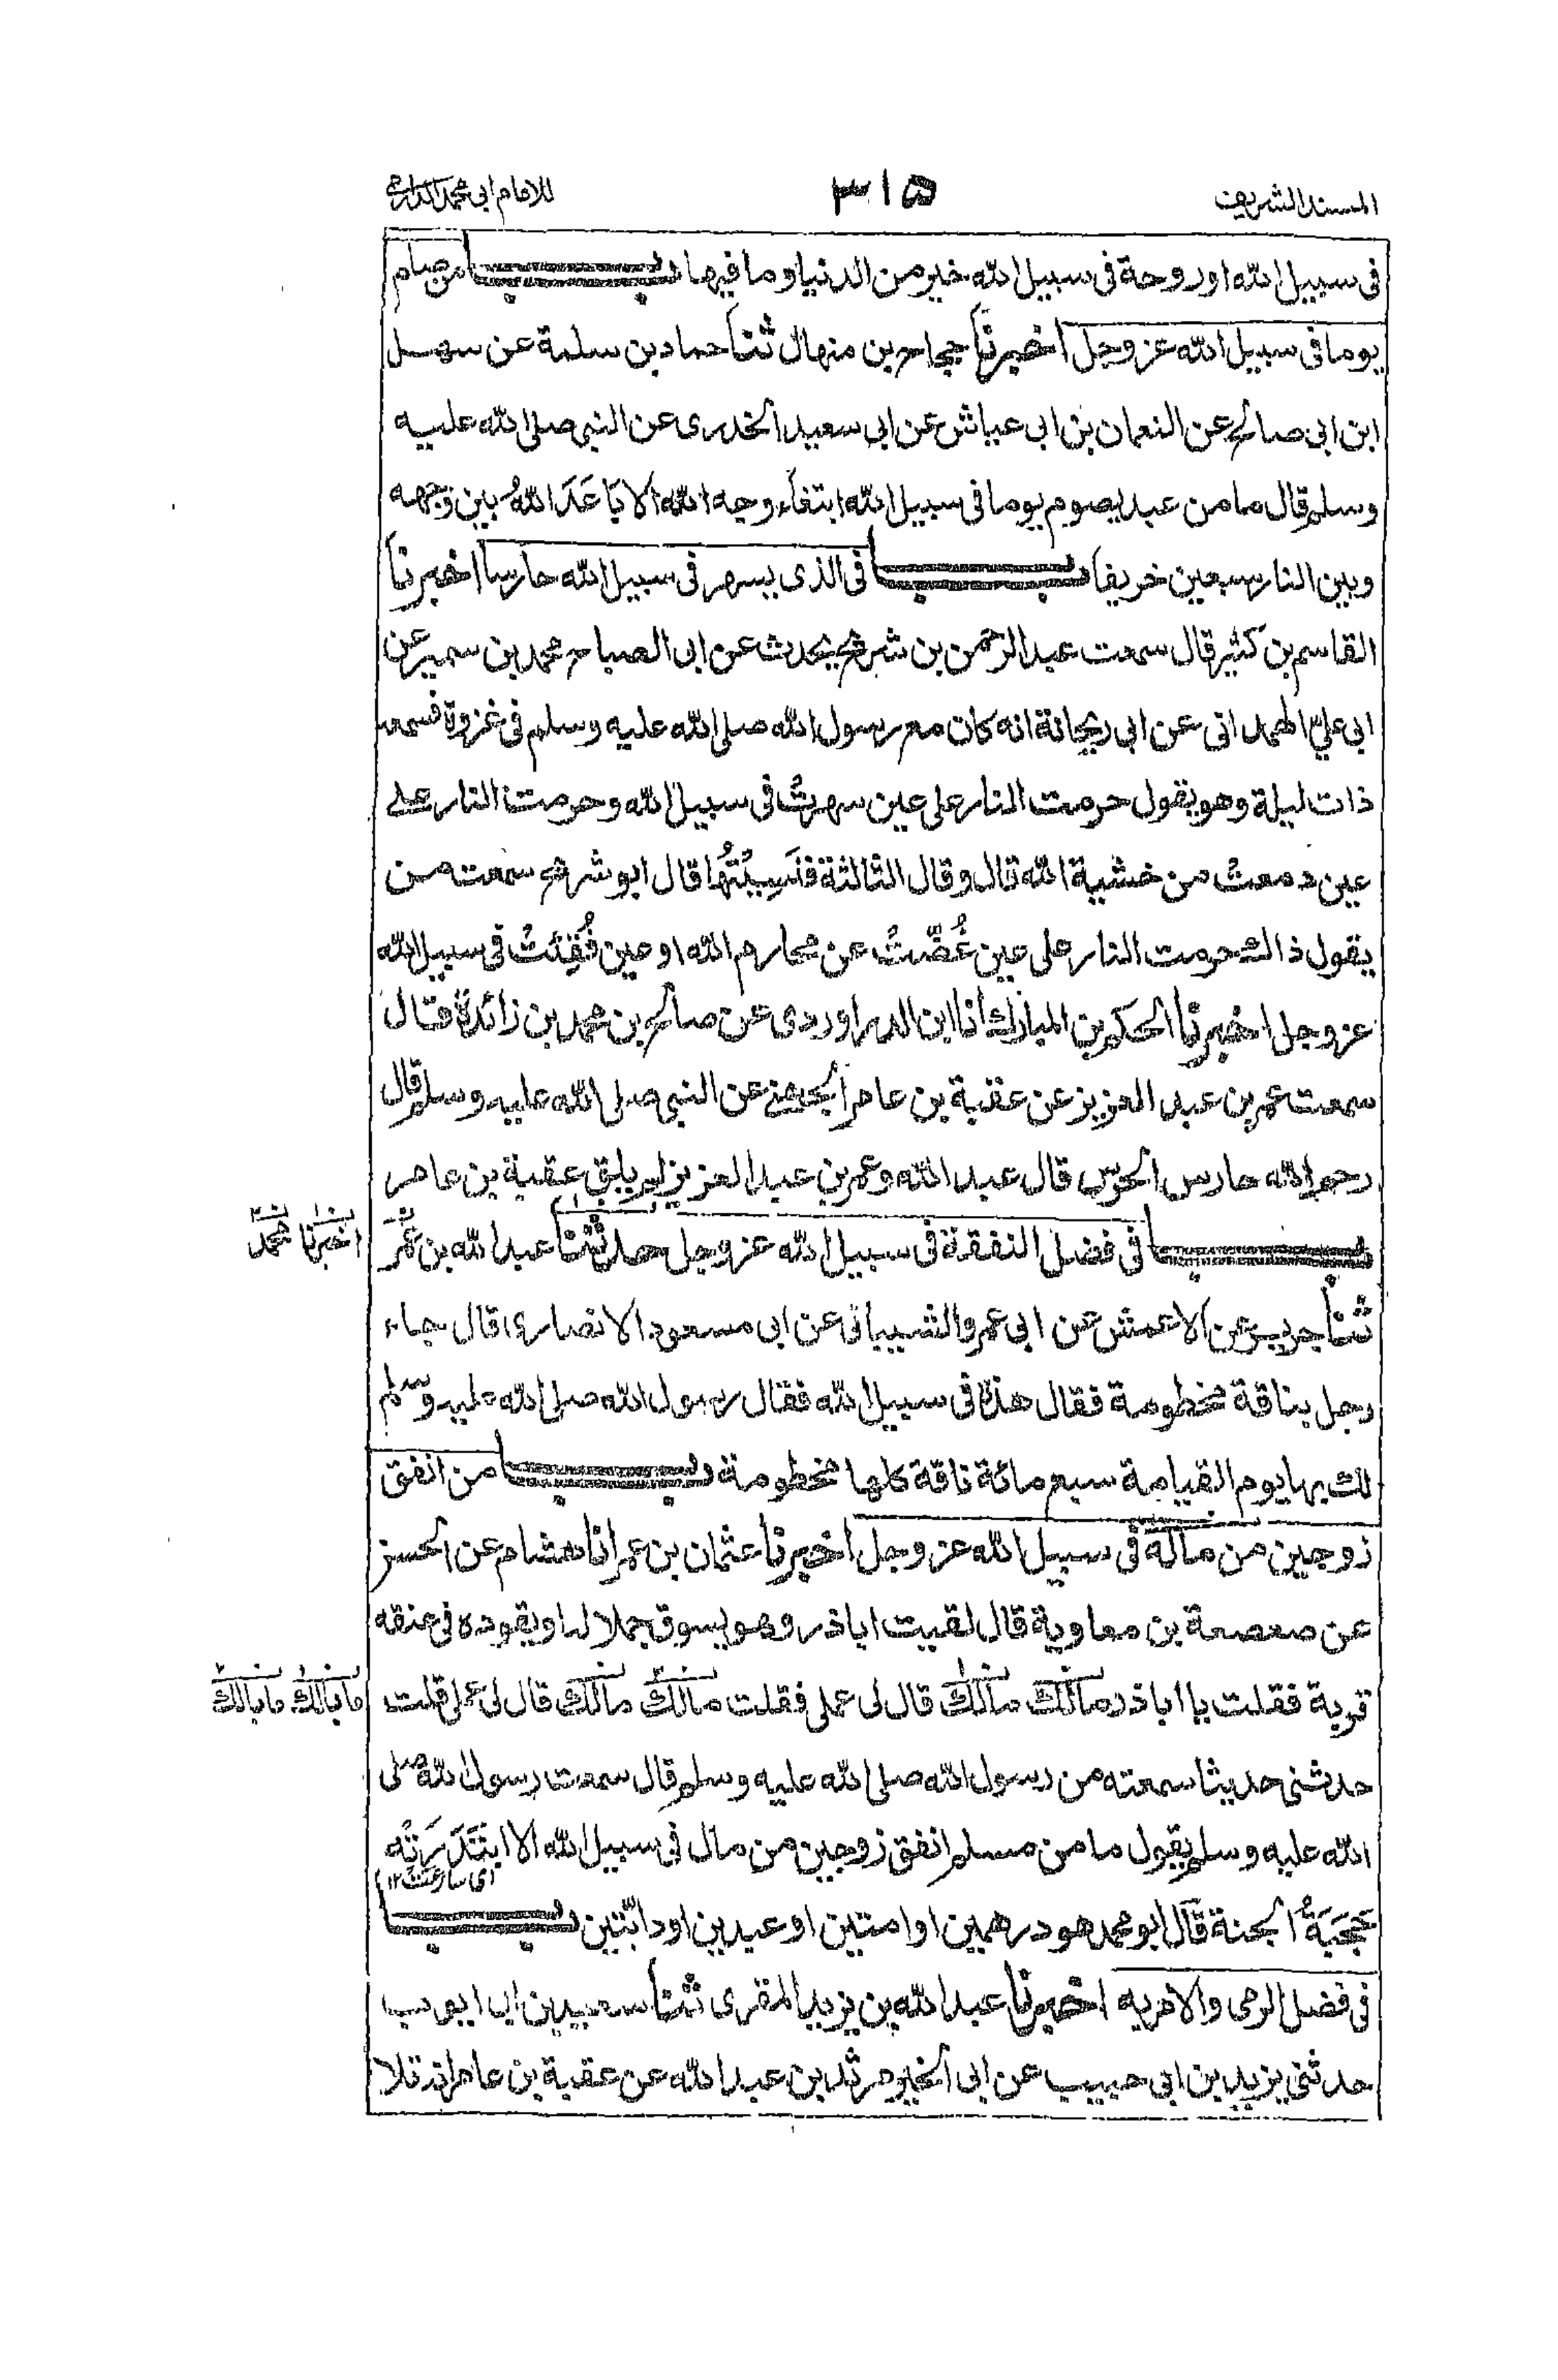 المسند الشريف ٣١٥ للامام ابي محمد الدارمي
في سبيل الله او روحة في سبيل الله خير من الدنيا وما فيها باب من صام
يوما في سبيل الله عز وجل اخبرنا حجاج بن منهال ثنا حماد بن سلمة عن سهيل
ابن ابي صالح عن النعمان بن ابي عياش عن ابي سعيد الخدري عن النبي صلى الله عليه
وسلم قال ما من عبد يصوم يوما في سبيل الله ابتغاء وجه الله الا بَاعَدَ اللهُ بين وجهه
وبين النار سبعين خريفا باب في الذي يسهر في سبيل الله حارسا اخبرنا
القاسم بن كثير قال سمعت عبد الرحمن بن شريح يحدث عن ابي الصباح محمد بن سمير عن
ابي عليّ الهمداني عن ابي ريحانة انه كان مع رسول الله صلى الله عليه وسلم في غزوة فسمعه
ذات ليلة وهو يقول حرمت النار على عين سهرتْ في سبيل الله وحرمت النار على
عين دمعتْ من خشية الله قال وقال الثالثة فنَسِيْتُهَا قال ابو شريح سمعت من
يقول ذالك حرمت النار على عين غُضَّتْ عن محارم الله او عين فُقِئَتْ في سبيل الله
عز وجل اخبرنا الحكم بن المبارك انا ابن الدراوردي عن صالح بن محمد بن زائدة قال
سمعت عمر بن عبد العزيز عن عقبة بن عامر الجهني عن النبي صلى الله عليه وسلم قال
رحم الله حارس الحرس قال عبد الله وعمر بن عبد العزيز لم يلق عقبة بن عامر
باب في فضل النفقة في سبيل الله عز وجل حدثنا عبد الله بن عُمَر
اخبرنا محمد
ثنا جرير عن الاعمش عن ابي عمرو الشيباني عن ابي مسعود الانصاري قال جاء
رجل بناقة مخطومة فقال هذا في سبيل الله فقال رسول الله صلى الله عليه وسلم
لك بها يوم القيامة سبع مائة ناقة كلها مخطومة باب من انفق
زوجين من ماله في سبيل الله عز وجل اخبرنا عثمان بن عمر انا هشام عن الحسن
عن صعصعة بن معاوية قال لقيت اباذر وهو يسوق جملا له او يقوده في عنقه
قربة فقلت يا اباذر مالك مالك قال لي عملي فقلت مالك مالك قال لي عملي قلت
ما بالك ما بالك
حدثني حديثا سمعته من رسول الله صلى الله عليه وسلم قال سمعت رسول الله صلى
الله عليه وسلم يقول ما من مسلم انفق زوجين من مال في سبيل الله الا ابْتَدَرَتْه
اي سارعت ١٢
حَجَبَةُ الجنة قال ابو محمد هو درهمين او امتين او عبدين او دابّتين باب
في فضل الرمي والامر به اخبرنا عبد الله بن يزيد المقرى ثنا سعيد بن ابي ايوب
حدثني يزيد بن ابي حبيب عن ابي الخير مرثد بن عبد الله عن عقبة بن عامر انه تلا